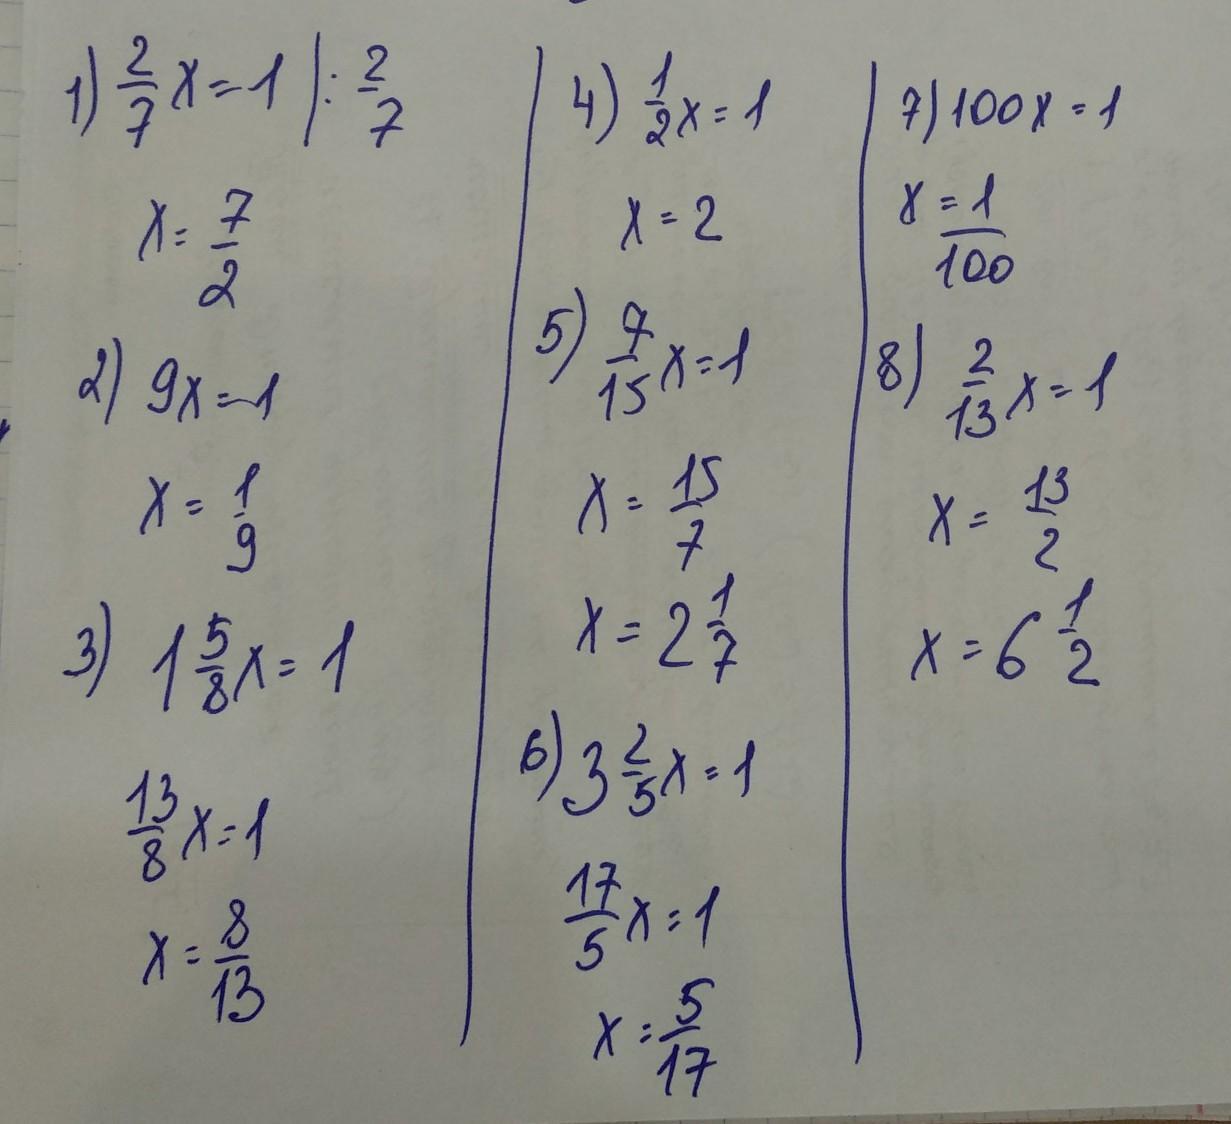 1) 2/7 x = 1 | : 2/7
x = 7/2
2) 9x = 1
x = 1/9
3) 1 5/8 x = 1
13/8 x = 1
x = 8/13
4) 1/2 x = 1
x = 2
5) 7/15 x = 1
x = 15/7
x = 2 1/7
6) 3 2/5 x = 1
17/5 x = 1
x = 5/17
7) 100x = 1
x = 1/100
8) 2/13 x = 1
x = 13/2
x = 6 1/2